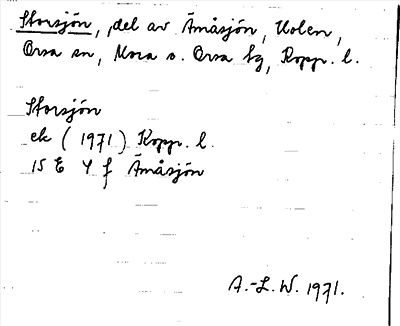 Storsjön, del av Ämåsjön, Kolen,
Orsa sn, Mora o. Orsa tg, Kopp. l.
Storsjön
ek (1971) Kopp. l.
15 E 4 f Ämåsjön
A.-L. W. 1971.